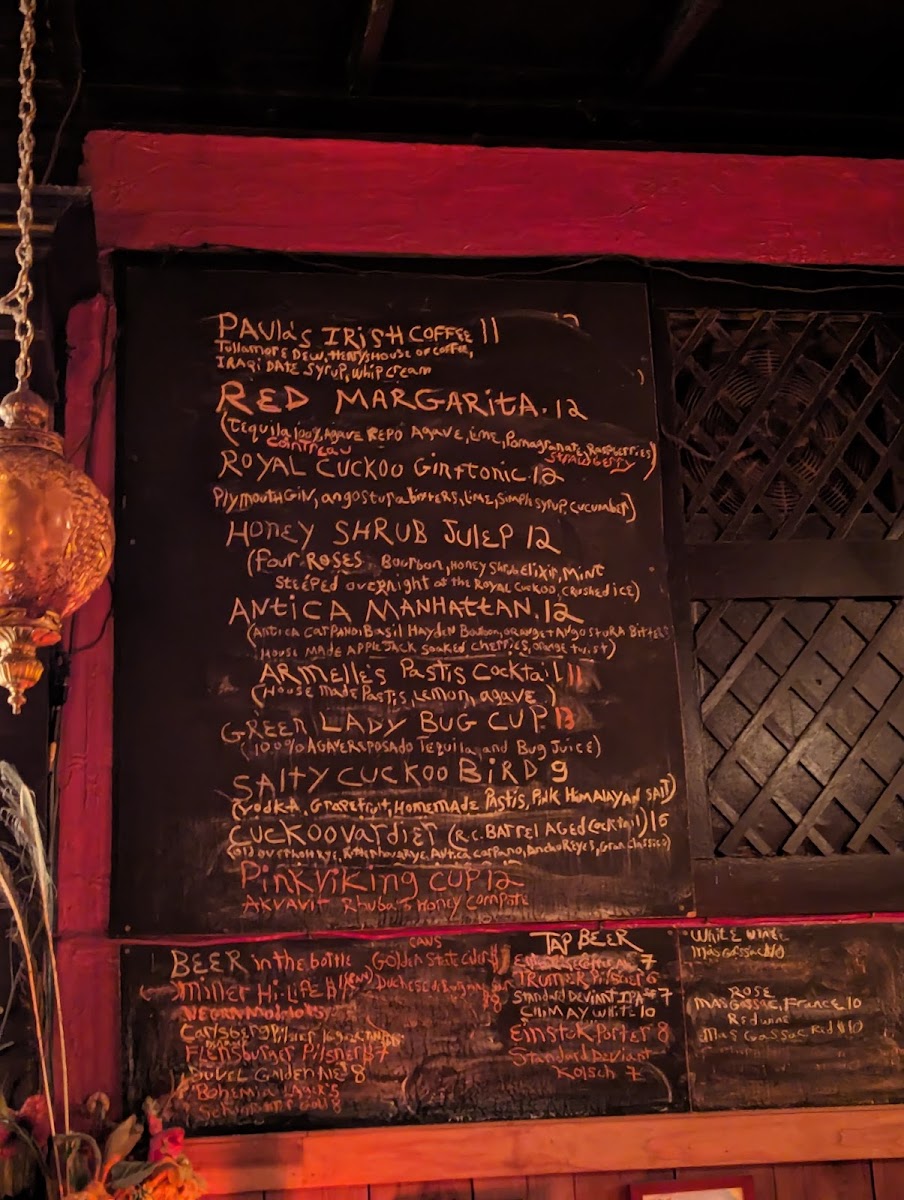 PAUla's IRiSH COFFEE 11
Tullamore DEW, HENRYSHOUSE OF COFFEE,
IRAQi DATE SYrUP, Whip Cream
RED MARGARitA. 12
(TEQUILA 100% AGAVE REPO AGAVE, LIME, Pomagranate, Raspberries)
COiNTrEau STrAWBErrY
ROYAL CUCKOO Gin+tonic. 12
PlYmouth GiN, angostura bitters, LiME, Simple syrup, cucumber)
HONEY SHRUB JulEP 12
(Four ROSES Bourbon, HONEY Shrub Elixir, MiNt
STEEPED overnight at the ROYAL CUCKOO, crushed ice)
ANtiCA MANHATTAN. 12
(ANTiCA CarPANO, Basil HAYden Bourbon, ORANGE + ANGOSTURA BittErs
HOUSE MADE APPLEJACK SOAKED CHErries, orange twist)
ARMElle's Pastis Cocktail 11
(HousE maDE Pastis, Lemon, agave)
GREEN LADY BUG CUP 13
(100% AGAVE REPOSADO TEquila and Bug Juice)
SAltY CUCKOO BiRD 9
(VODKA, Grapefruit, HOMEMADE Pastis, Pink HiMALAYAN SAlT)
CUCKOOVardier (R.C. BArrEL AGED Cocktail) 15
PinkViking CUP 12
AKVAVIT Rhubarb Honey ComPotE
BEER in the bottle
Miller Hi-LiFE
Carlsberg Pilsner
FLENSburger PilsnEr 7
DUVEL GolDEN AlE 8
BohEmia
CANS
GOLDEN State Cider
TAP BEER
TRUMER PilSner 6
STANDARD DEViANT IPA 7
CHiMAY WHitE 10
Einstok Porter 8
Standard Deviant
Kolsch 7
WHitE WiNE
Mas GASSAC
ROSE
MAS GASSAC, FrancE 10
REd winE
Mas GASSAC REd 10